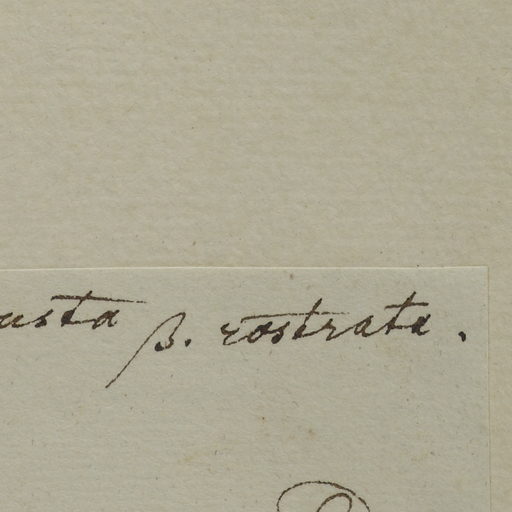 usta β. rostrata.